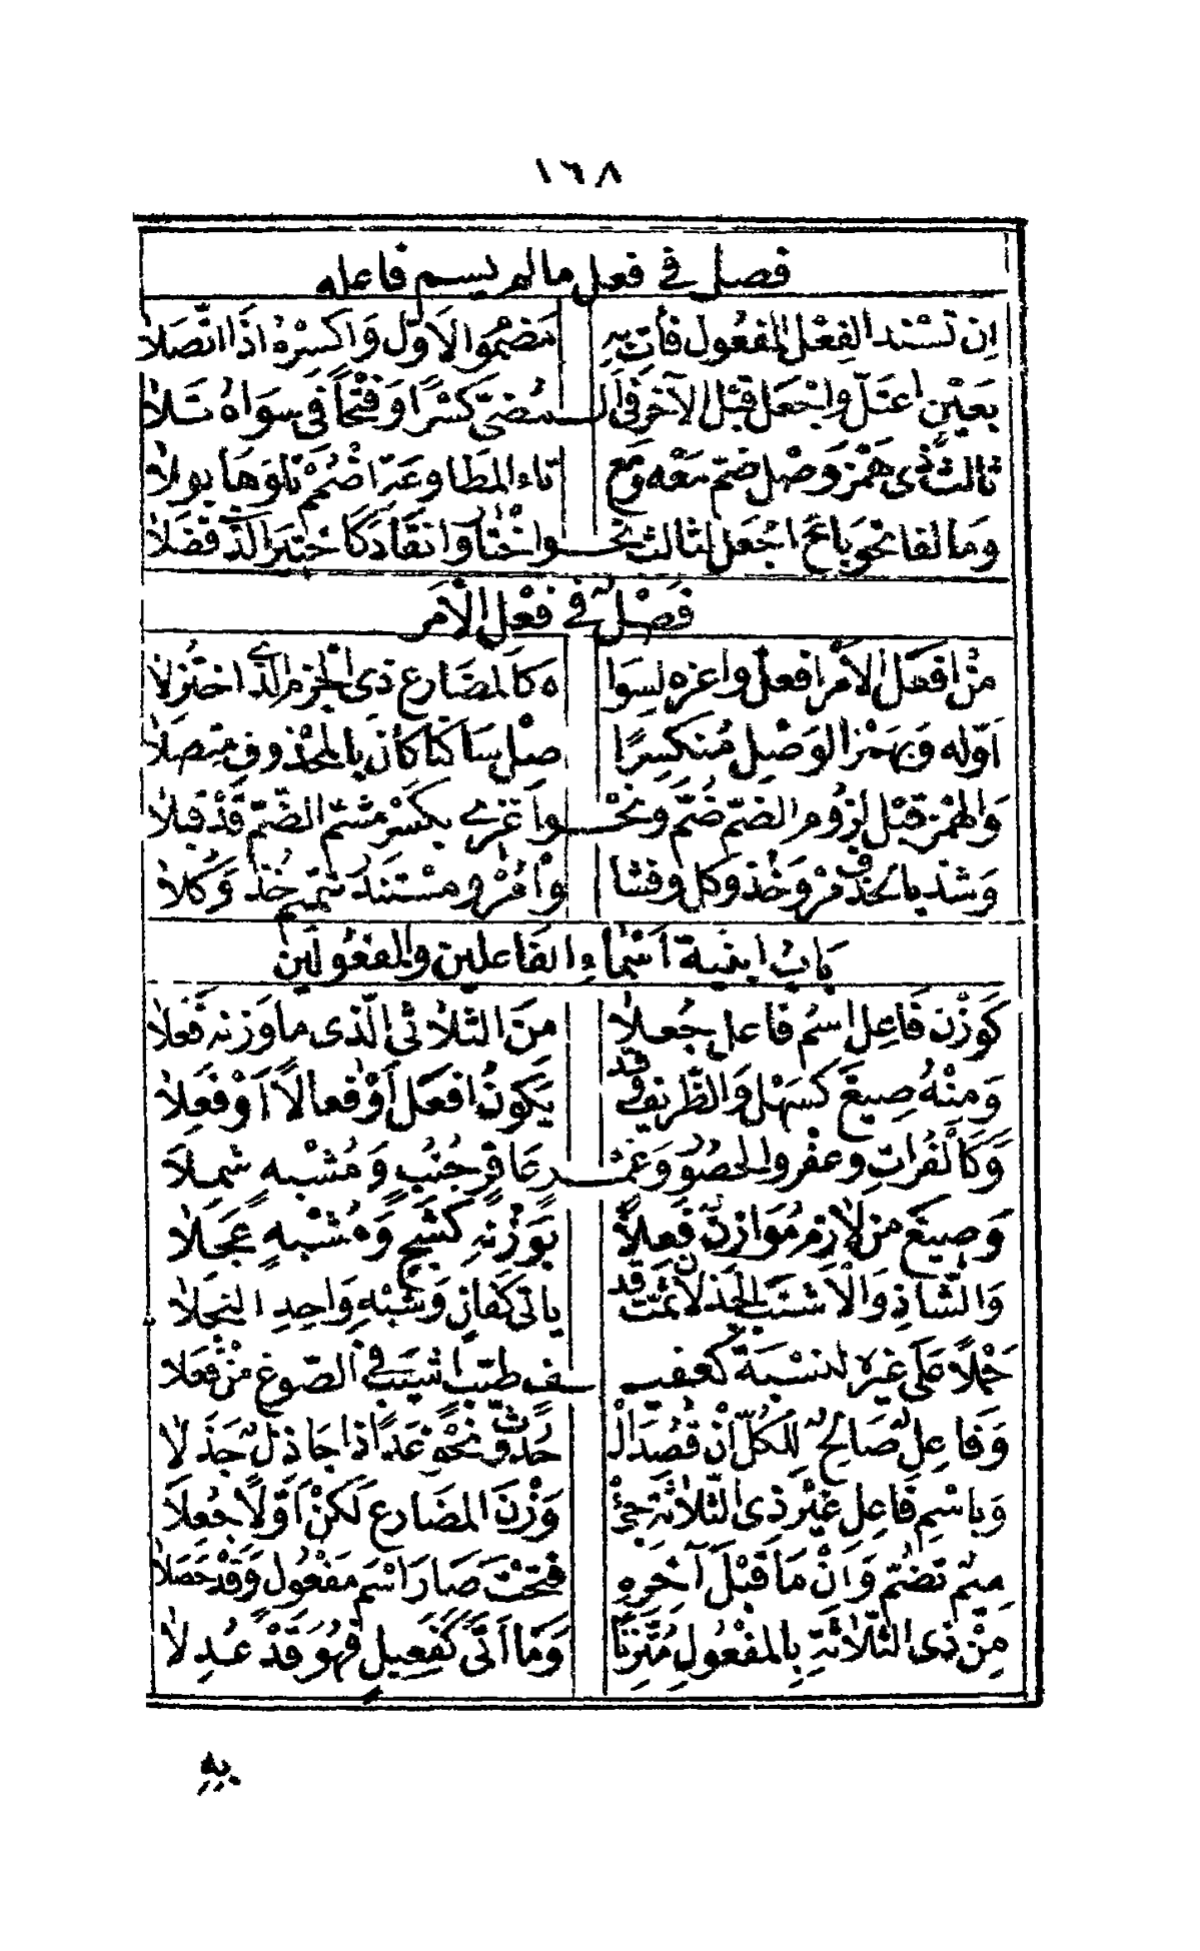 ١٦٨
فصل في فعل ما لم يسم فاعله
اِن تسْند الفِعْل للمفعُول فأت بِهِ مَضمُوم الاَوّل وَاكسِرْهُ اذَا اتّصَلاَ
بَعيْنٍ اعتلّ وَاجْعَل قبْل الآخر في اَلـ ـمُضيّ كسْرًا وَفتْحًا في سِوَاهُ تَلاَ
ثالث ذي هَمْز وَصْل ضمّ مَعْه وَمَع تاء المطاوعَة اضْمُمْ تلوَهَا بولاَ
وَمَا لفا نحو باعَ اجْعَل لثالث نحـ ـو اخْتارَ وَانقَادَ كَاخْتيرَ الّذ فضَلاَ
فَصْلٌ في فعْل الاَمْر
مْن افعَل الاَمْر افعل واعزه لسِوَا ه كَالمضَارع ذي الجَزم الّذي اختُزلاَ
اَوّله وَبهَمْز الوَصْلِ مُنكسِرًا صِلْ سَاكنًا كانَ بالمحْذوف متصِلاَ
وَالهمْز قبْل لزُوم الضمّ ضُمّ ونحْـ ـو اغزي بكسْر مشَمّ الضّمّ قَدْ قبلاَ
وَشذ بالحَذْف مُرْ وَخُذْ وَكل وفشا وَأمُرْ ومسْتندَر تتميم خُذْ وَكُلاَ
بَابُ ابنيَة اَسْمَاءِ الفَاعلين وَالمفعُولينَ
كَوَزْن فَاعِل اسْم فاعل جُعلاَ منَ الثّلاَثي الّذي مَا وَزنه فَعَلاَ
وَمنْهُ صِيغَ كَسَهْل وَالظّريف وَقد يَكونُ افعَل اَوْ فعالاً اَوْ فعِلاَ
وَكَالفُرَات وَعفْر وَالحصُور وَغمْـ ـر عَاقرٍ جُنُبٍ وَمُشْبهٍ شمِلاَ
وَصِيغَ من لاَزمٍ مُوَازنٍ فَعِلاً بوَزْنهِ كشَجٍ وَمُشْبهٍ عَجِلاَ
وَالشّاذِ وَالاَشنَب الجَذلاَن ثمّت قد يَاتي كَفَانٍ وَشبْهِ وَاحِدِ البُخلاَ
حَمْلاً عَلى غيْره لنسْبَة كَخفيـ ـف طيّب اَشيَب في الصّوغ مْن فعَلاَ
وَفاعِلٌ صَالحٌ للكُلّ اِنْ قُصِدَ الْـ حُدُوثُ نَحْو غَدًا ذا جَاذلٌ جَذَلاَ
وَباسْمِ فَاعِل غيْر ذي الثّلاَثة جئْ وَزْنَ المضَارع لَكنْ اَوّلاً جُعلاَ
ميْم تضُمّ وَاِنْ مَا قبْلَ آخرِهِ فتحْتَ صَارَ اسْم مَفْعُول وَقدْ حَصَلاَ
مِنْ ذي الثّلاَثةِ بِالمفْعُولِ مُتّزنًا وَمَا اَتى كَفعِيلٍ فهُوَ قَدْ عُدِلاَ
بِهِ